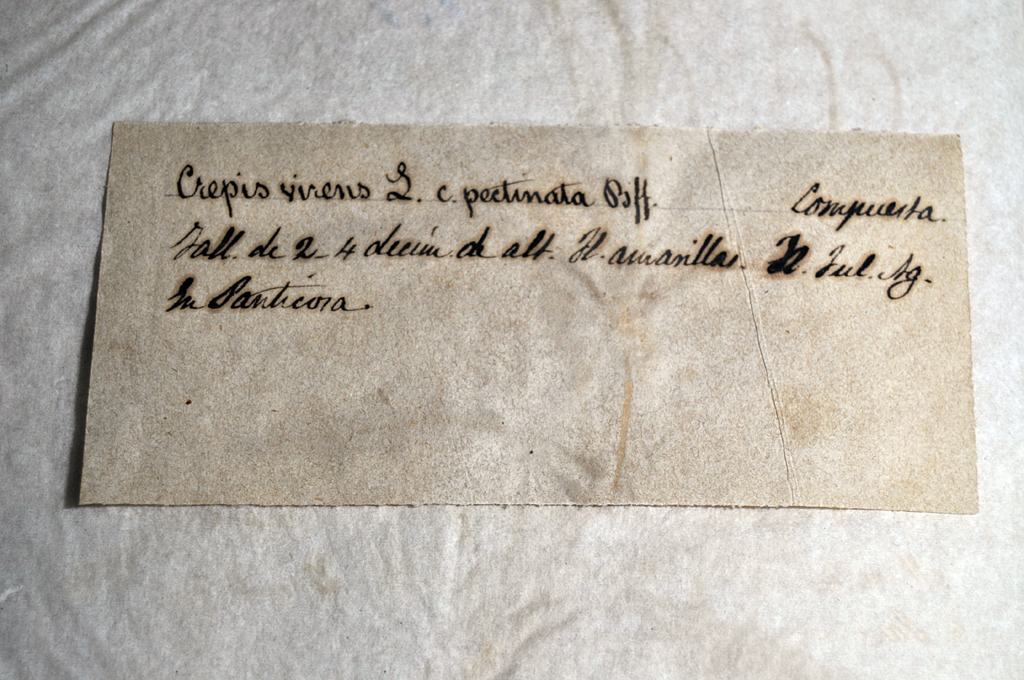 Crepis virens L. c. pectinata Bss. Compuesta.
Tall. de 2-4 decím. de alt. Fl. amarillas. Fl. Jul. Ag.
En Panticosa.